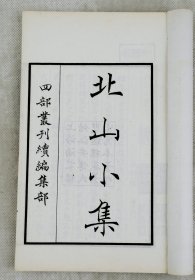 北山小集
四部叢刊續編集部